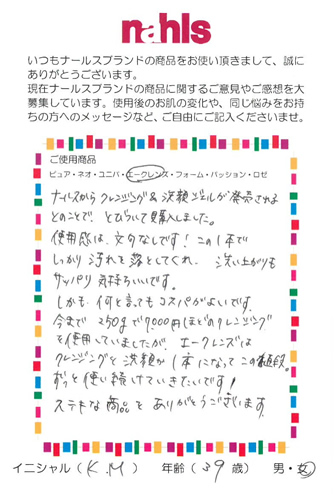 nahls
いつもナールスブランドの商品をお使い頂きまして、誠に
ありがとうございます。
現在ナールスブランドの商品に関するご意見やご感想を大
募集しています。使用後のお肌の変化や、同じ悩みをお持
ちの方へのメッセージなど、ご自由にご記入くださいませ。
ご使用商品
ピュア・ネオ・ユニバ・エークレンズ・フォーム・パッション・ロゼ
ナールスから クレンジング&洗顔ジェルが発売される
とのことで、とびらいて購入しました。
使用感は、文句なしです! この1本で
しっかり汚れを落としてくれ、洗い上がりも
サッパリ気持ちいいです。
しかも、何と言ってもコスパがよいです。
今まで 250gで7,000円ほどのクレンジング
を使用していましたが、エークレンズは
クレンジングと洗顔が1本になってこの値段。
ずっと使い続けていきたいです!
ステキな商品を ありがとうございます。
イニシャル ( K.M ) 年齢 ( 39 歳 ) 男・女